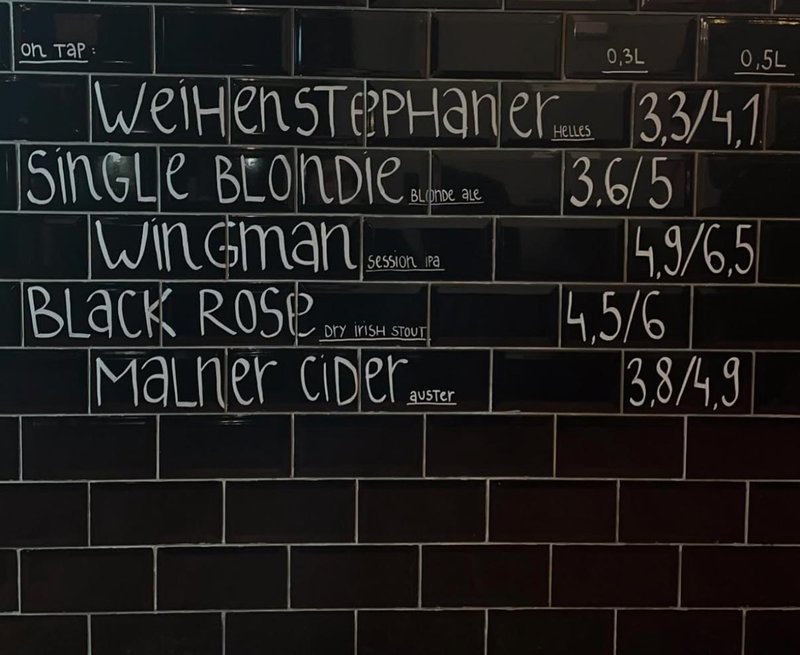 on Tap: 0,3L 0,5L
WeiHenSTePHaner HeLLes 3,3/4,1
SinGLe BLOnDie BLonDe aLe 3,6/5
WinGman session iPa 4,9/6,5
BLaCK ROSe DRY iRiSH STOUT 4,5/6
MaLner CiDer auSTer 3,8/4,9